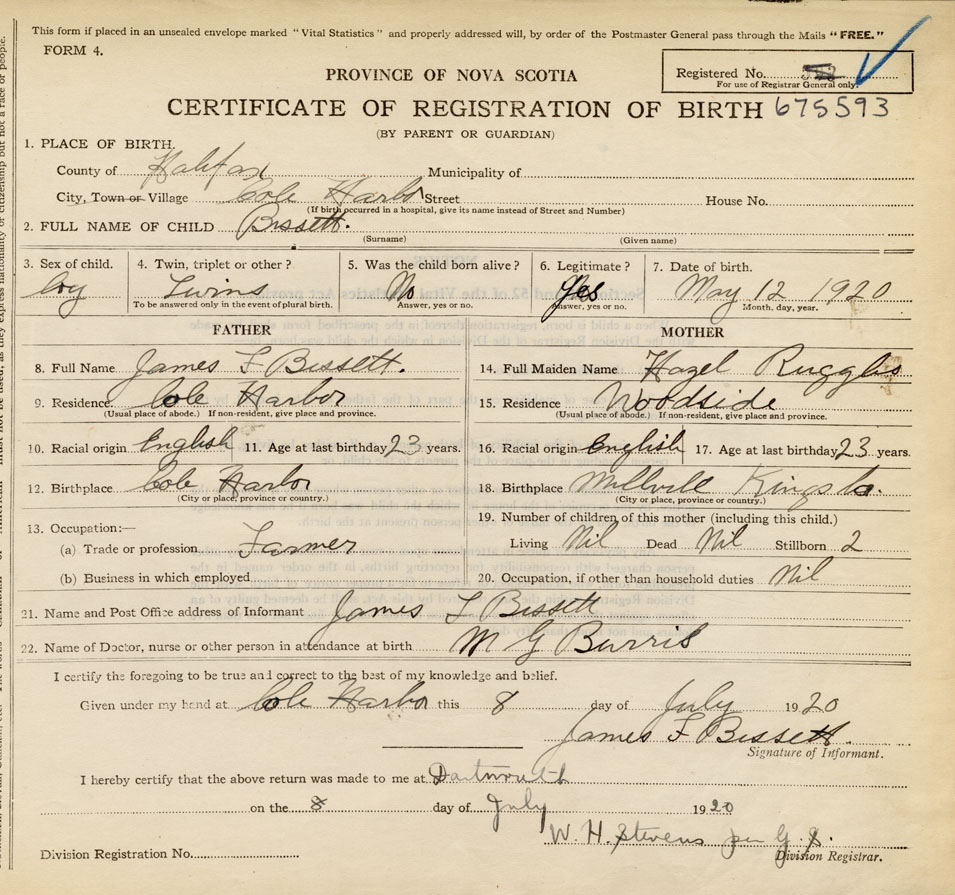 This form if placed in an unsealed envelope marked "Vital Statistics" and properly addressed will, by order of the Postmaster General pass through the Mails "FREE."
FORM 4.
PROVINCE OF NOVA SCOTIA
Registered No.
For use of Registrar General only.
CERTIFICATE OF REGISTRATION OF BIRTH 675593
(BY PARENT OR GUARDIAN)
1. PLACE OF BIRTH.
County of Halifax Municipality of
City, Town or Village Cole Harbor Street House No.
(If birth occurred in a hospital, give its name instead of Street and Number)
2. FULL NAME OF CHILD Bissett.
(Surname) (Given name)
3. Sex of child. 4. Twin, triplet or other? 5. Was the child born alive? 6. Legitimate? 7. Date of birth.
boy Twins No Yes May 12 1920
To be answered only in the event of plural birth. Answer, yes or no. Answer, yes or no. Month, day, year.
FATHER MOTHER
8. Full Name James F Bissett. 14. Full Maiden Name Hazel Ruggles
9. Residence. Cole Harbor 15. Residence Woodside
(Usual place of abode.) If non-resident, give place and province. (Usual place of abode.) If non-resident, give place and province.
10. Racial origin English 11. Age at last birthday 23 years. 16. Racial origin English 17. Age at last birthday 23 years.
12. Birthplace Cole Harbor 18. Birthplace Millville Kings Co.
(City or place, province or country.) (City or place, province or country.)
13. Occupation:— 19. Number of children of this mother (including this child.)
(a) Trade or profession Farmer Living Nil Dead Nil Stillborn 2
(b) Business in which employed 20. Occupation, if other than household duties Nil
21. Name and Post Office address of Informant James F Bissett
22. Name of Doctor, nurse or other person in attendance at birth M G Burris
I certify the foregoing to be true and correct to the best of my knowledge and belief.
Given under my hand at Cole Harbor this 8 day of July 1920
James F Bissett.
Signature of Informant.
I hereby certify that the above return was made to me at Dartmouth
on the 8 day of July 1920
W. H. Stevens per G S.
Division Registration No. Division Registrar.